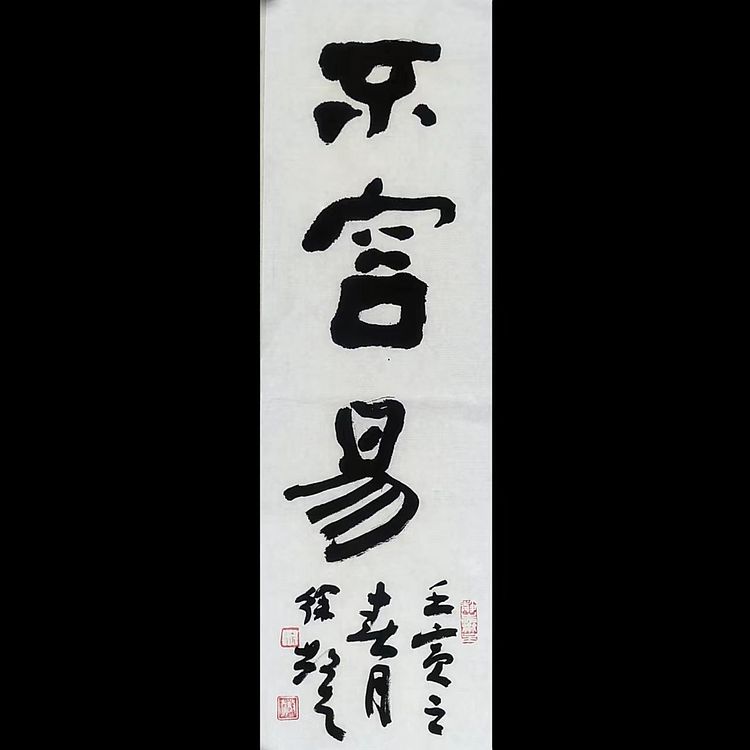 不容易
壬寅之
春月
徐